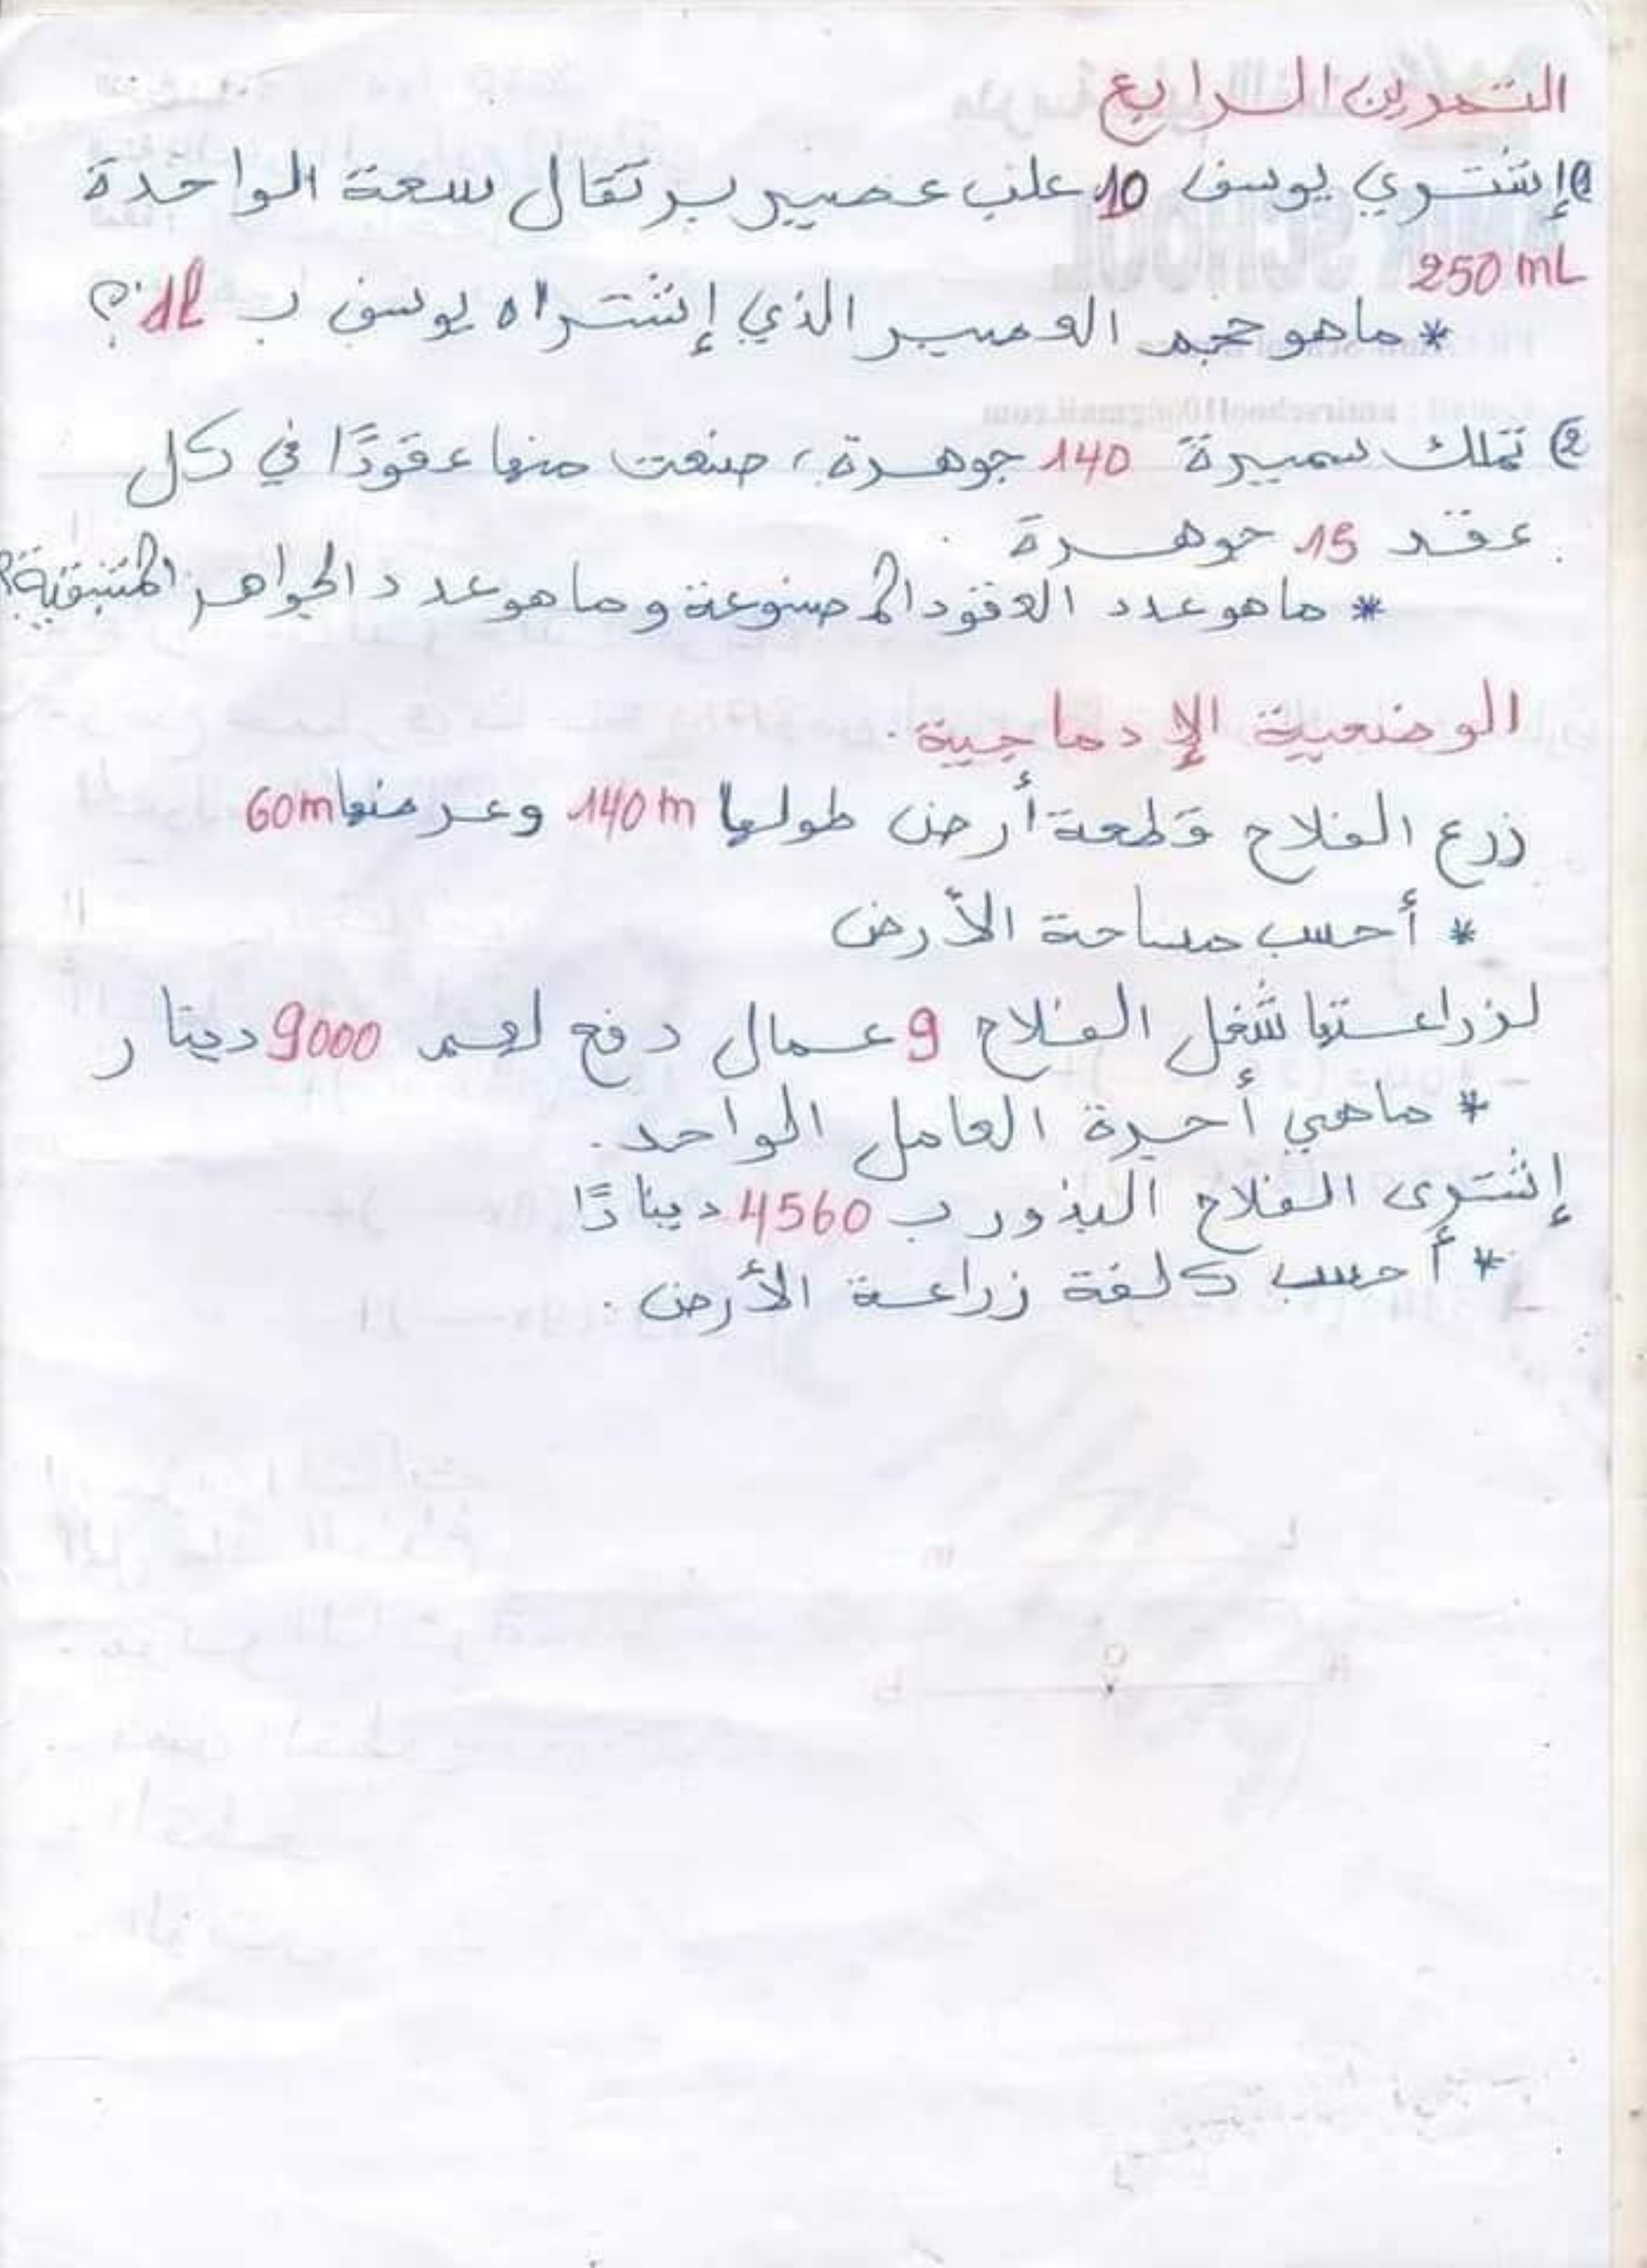 التمرين الرابع
1) إشتري يوسف 10 علب عصير برتقال سعة الواحدة
250 mL
* ماهو حجم العصير الذي إشتراه يوسف ب 1l؟
2) تملك سميرة 140 جوهرة، صنعت منها عقودًا في كل
عقد 15 جوهرة.
* ماهو عدد العقود المصنوعة وماهو عدد الجواهر المتبقية؟
الوضعية الإدماجية.
زرع الفلاح قطعة أرض طولها 140 m وعرضها 60m
* أحسب مساحة الأرض
لزراعتها شغل الفلاح 9 عمال دفع لهم 9000 دينار
* ماهي أجرة العامل الواحد.
إشترى الفلاح البذور ب 4560 دينارًا
* أحسب كلفة زراعة الأرض.